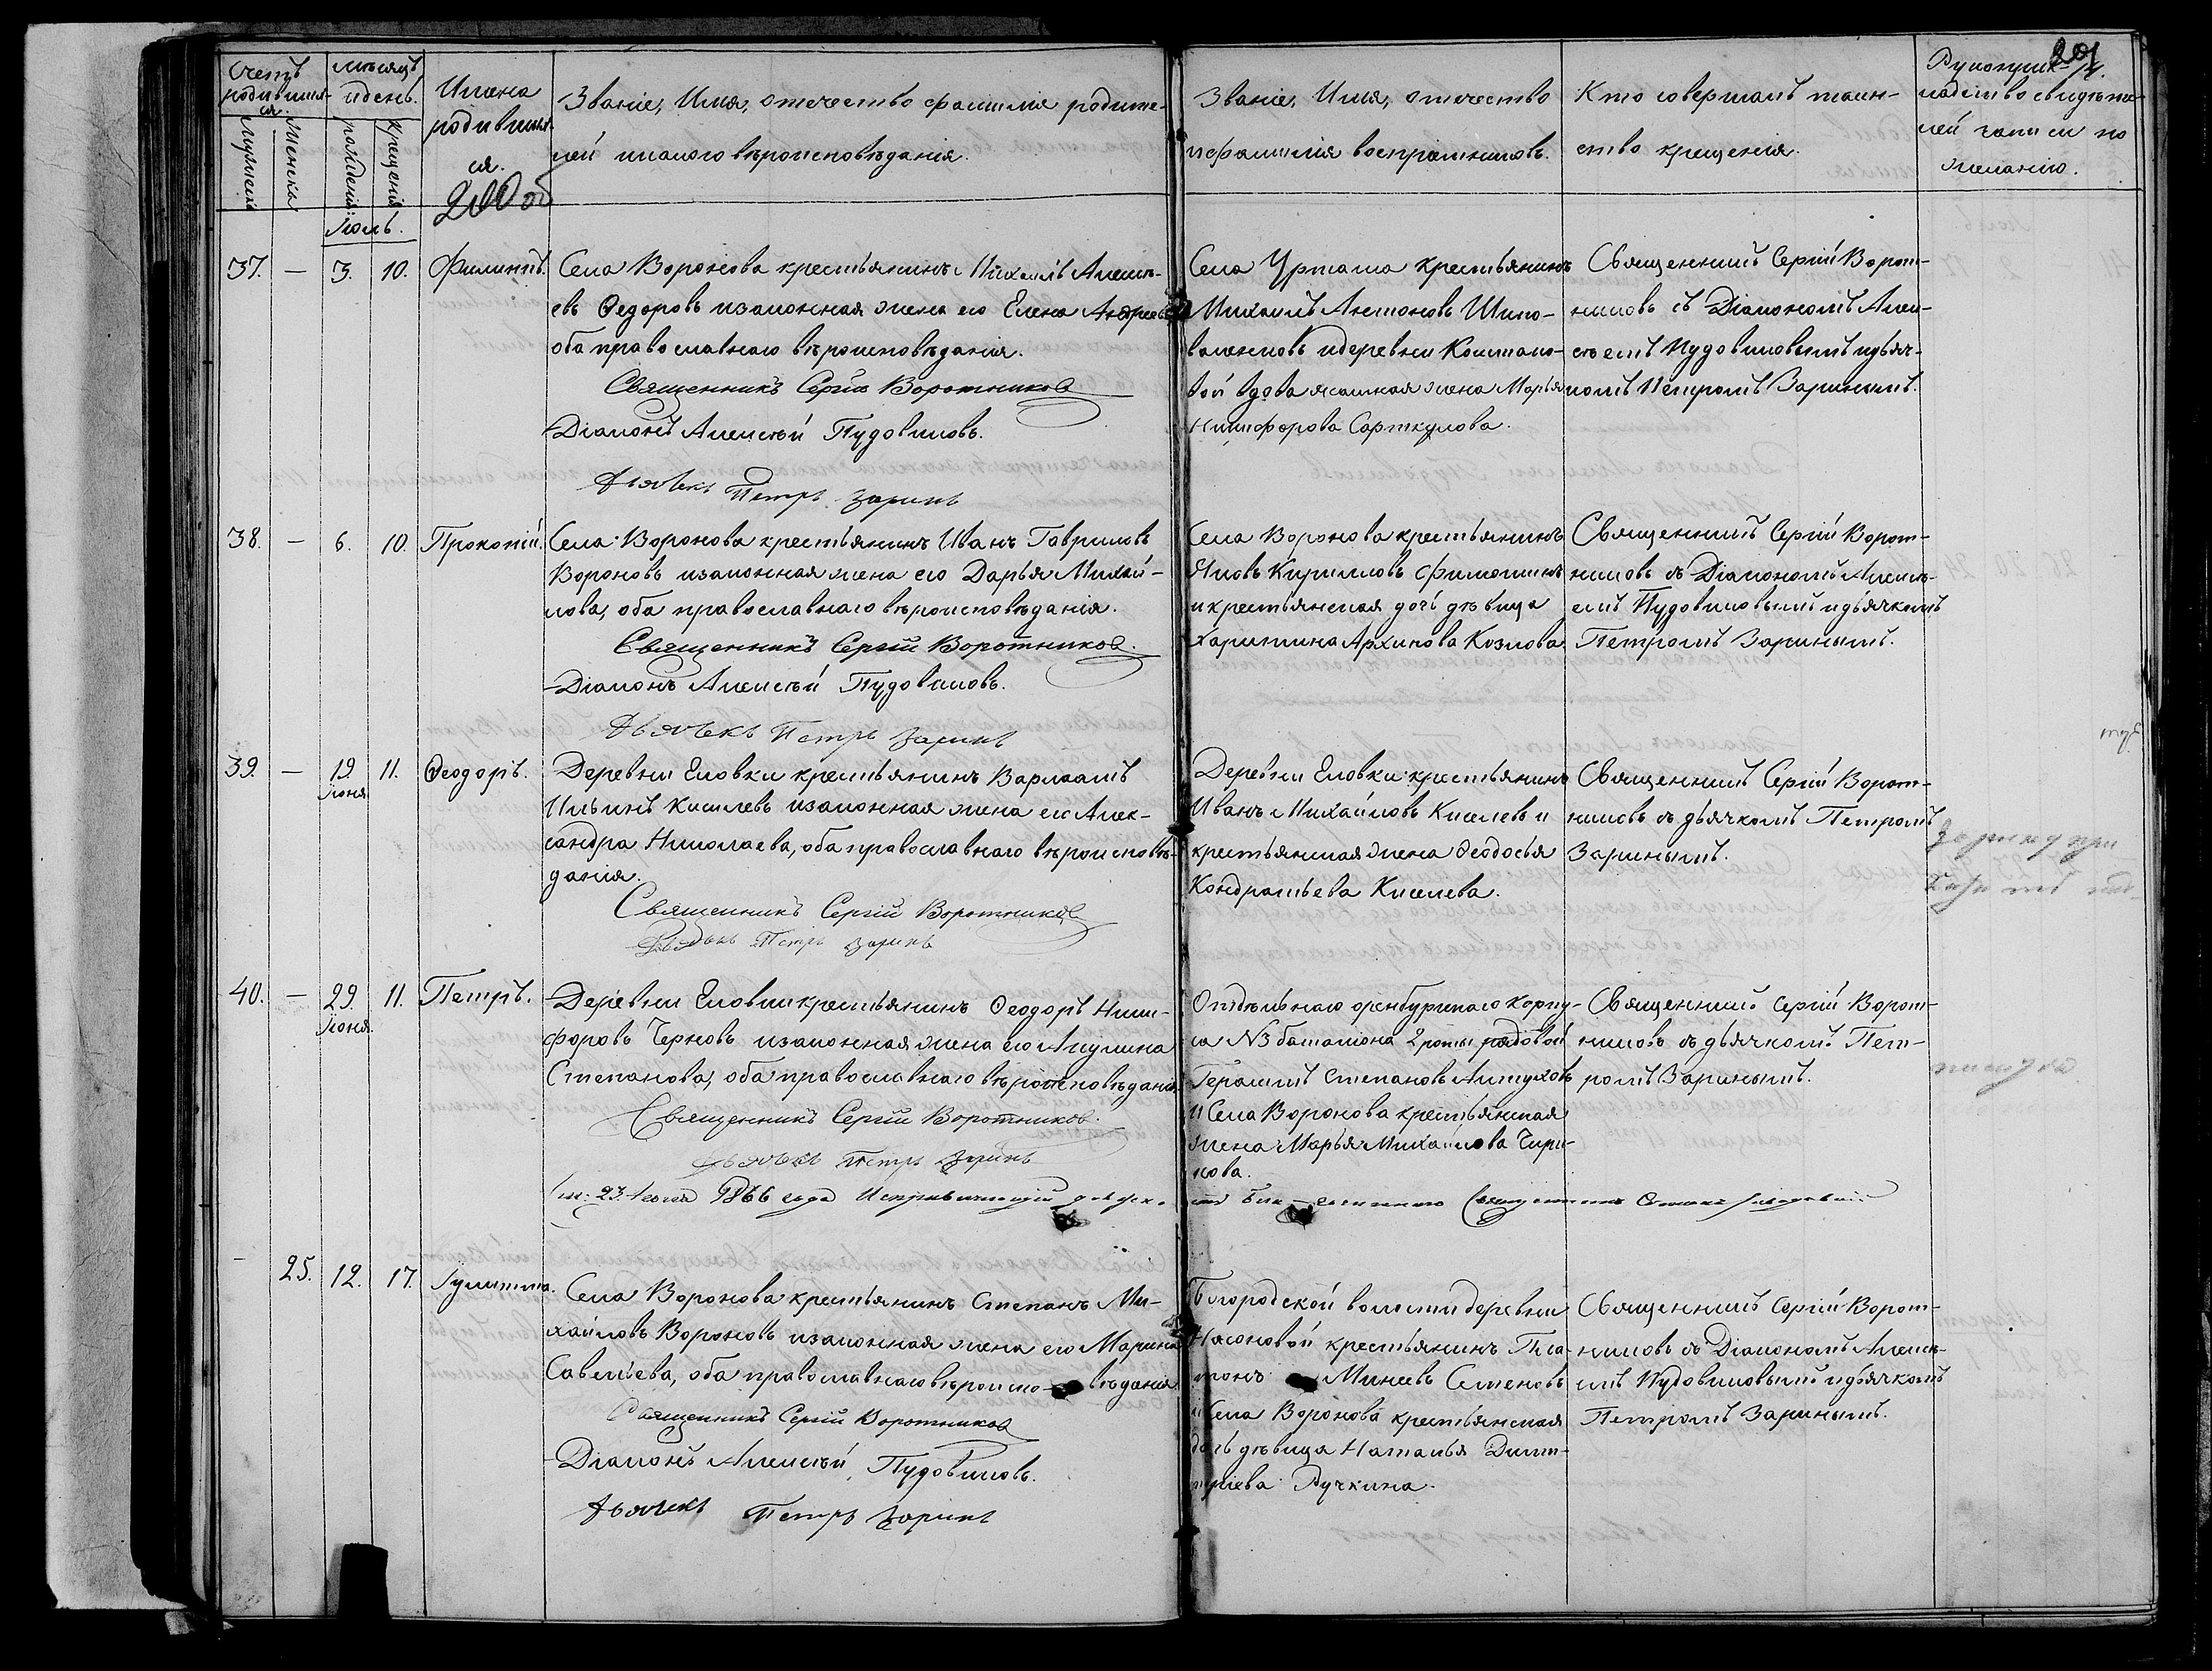 Счетъ
родивших-
ся.
Мужеска
Женска
Мѣсяцъ
и день.
рожденія
крещенія
Имена
родивших-
ся.
200 об
Званіе, Имя, отечество фамилія родите-
лей и какого вѣроисповѣданія.
Званіе, Имя, отечество
и фамилія воспріемниковъ.
Кто совершалъ таин-
ство крещенія.
201
Рукоприк-
ладство свидѣте-
лей записи по
желанію.
Іюль.
37. — 3. 10. Филиппъ.
Села Воронова крестьянинъ Михаилъ Алексѣ-
евъ Ѳедоровъ и законная жена его Елена Андреева
оба православнаго вѣроисповѣданія.
Священникъ Сергій Воротниковъ
Діаконъ Алексѣй Пудовиковъ.
Дьячекъ Петръ Заринъ
Села Уртама крестьянинъ
Михаилъ Антоновъ Шипо-
валенковъ и деревни
вой вдова ясашная жена Марья
Никифорова Сарткулова.
Священникъ Сергій Ворот-
никовъ съ Діакономъ Алек-
сѣемъ Пудовиковымъ и дьяч-
комъ Петромъ Заринымъ.
38. — 6. 10. Прокопій.
Села Воронова крестьянинъ Иванъ Гавриловъ
Вороновъ и законная жена его Дарья Михай-
лова, оба православнаго вѣроисповѣданія.
Священникъ Сергій Воротниковъ.
Діаконъ Алексѣй Пудовиковъ.
Дьячекъ Петръ Заринъ
Села Воронова крестьянинъ
Яковъ Кирилловъ Филошинъ
и крестьянская дочь дѣвица
Харитина Архипова Козлова
Священникъ Сергій Ворот-
никовъ съ Діакономъ Алексѣ-
емъ Пудовиковымъ и дьячкомъ
Петромъ Заринымъ.
39. — 19 Іюня 11. Ѳеодоръ.
Деревни Еловки крестьянинъ Варлаамъ
Ильинъ Киселевъ и законная жена его Алек-
сандра Николаева, оба православнаго вѣроисповѣ-
данія.
Священникъ Сергій Воротниковъ
Дьячекъ Петръ Заринъ
Деревни Еловки крестьянинъ
Иванъ Михайловъ Киселевъ и
крестьянская жена Ѳеодосья
Кондратьева Киселева.
Священникъ Сергій Ворот-
никовъ съ дьячкомъ Петромъ
Заринымъ.
40. — 29 Іюня 11. Петръ.
Деревни Еловки крестьянинъ Ѳеодоръ Ники-
форовъ Черновъ и законная жена его Акулина
Степанова, оба православнаго вѣроисповѣданія
Священникъ Сергій Воротниковъ.
Дьячекъ Петръ Заринъ
Отдѣльнаго оренбургскаго корпу-
са N3 баталіона 2 роты рядовой
Герасимъ Степановъ
и Села Воронова крестьянская
жена Марья Михайлова Чири-
кова.
Священникъ Сергій Ворот-
никовъ съ дьячкомъ Пет-
ромъ Заринымъ.
23 1866 года Священникъ
— 25. 12. 17. Іулитта.
Села Воронова крестьянинъ Степанъ Ми-
хайловъ Вороновъ и законная жена его Марина
Савельева, оба православнаго вѣроиспо-вѣданія
Священникъ Сергій Воротниковъ
Діаконъ Алексѣй Пудовиковъ.
Дьячекъ Петръ Заринъ
Богородской волости деревни
Насоновой крестьянинъ Пла-
тонъ Минеевъ Семеновъ
и Села Воронова крестьянская
дочь дѣвица Наталья Дмит-
ріева Ручкина.
Священникъ Сергій Ворот-
никовъ съ Діакономъ Алексѣ-
емъ Пудовиковымъ и дьячкомъ
Петромъ Заринымъ.